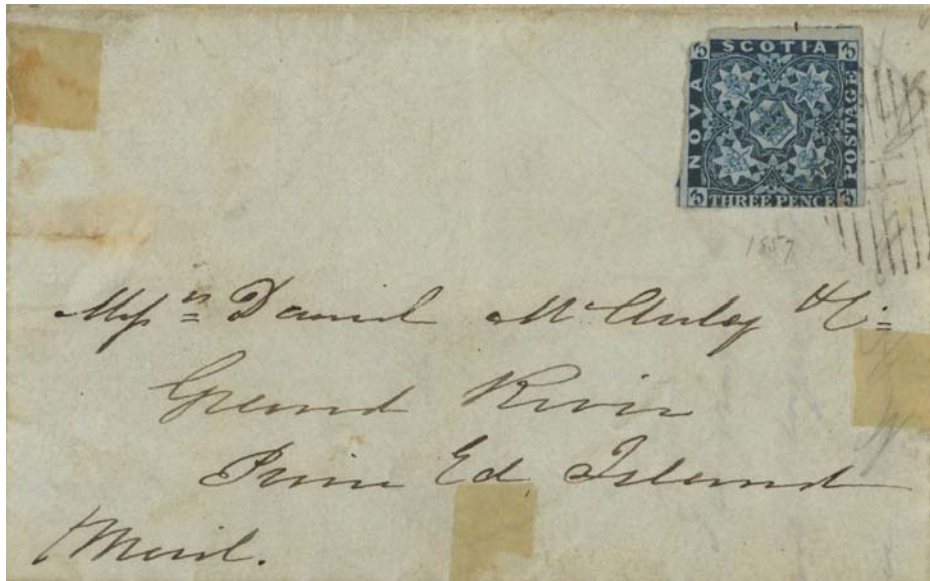 SCOTIA
NOVA
POSTAGE
3 3
THREE PENCE
3 3
1857
Messrs David McAuley & Co
Grand River
Prince Ed Island
Mail.